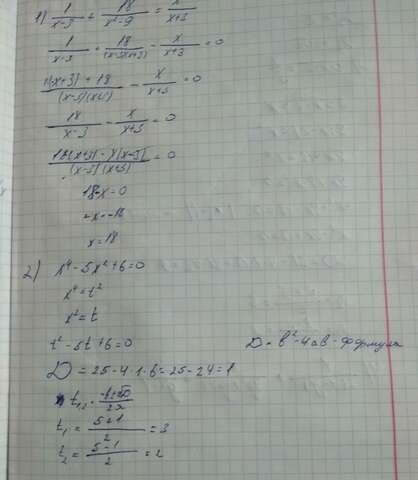 1) 1/(x-3) + 18/(x²-9) = x/(x+3)
1/(x-3) + 18/((x-3)(x+3)) - x/(x+3) = 0
(1(x+3)+18)/((x-3)(x+3)) - x/(x+3) = 0
18/(x-3) - x/(x+3) = 0
(18(x+3) - x(x-3))/((x-3)(x+3)) = 0
18-x=0
-x=-18
x=18
2) x⁴-5x²+6=0
x⁴=t²
x²=t
t²-5t+6=0 D=b²-4ab-формула
D=25-4·1·6=25-24=1
t₁,₂=(-b±√D)/2a
t₁=(5+1)/2=3
t₂=(5-1)/2=2